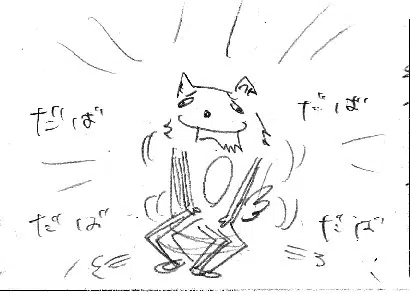 だば
だば
だば
だば